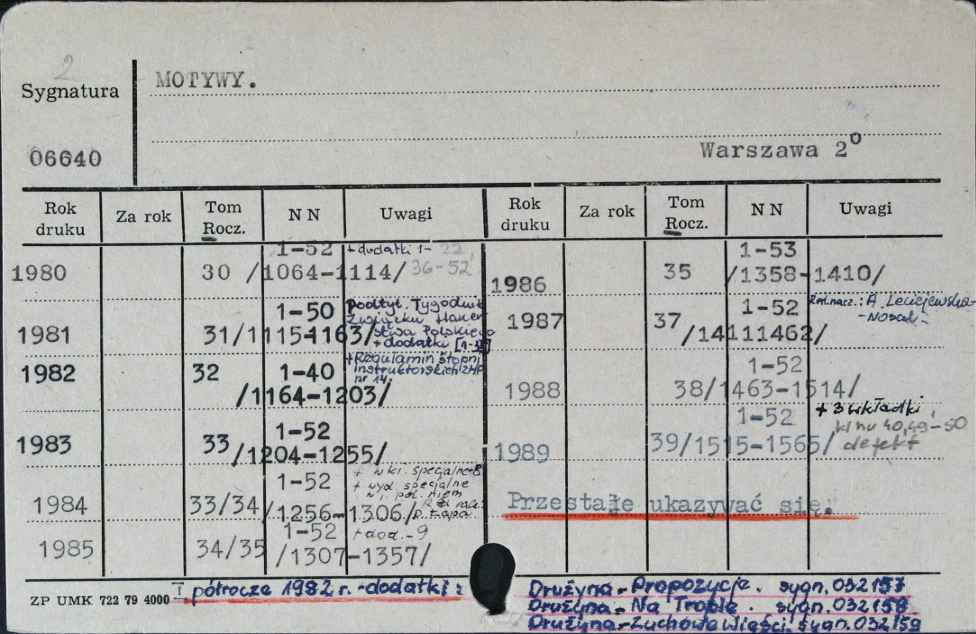 2
Sygnatura
MOTYWY.
06640
Warszawa 2°
Rok druku Za rok Tom Rocz. NN Uwagi
1980 30 1-52 /1064-1114/ + dodatki 1-22, 36-52
1981 31 1-50 /1115-1163/ Podtyt. Tygodnik Związku Harcerstwa Polskiego + dodatki
1982 32 1-40 /1164-1203/ + Regulamin stopni instruktorskich ZHP nr 14
1983 33 1-52 /1204-1255/
1984 33/34 1-52 /1256-1306/ + wkł. specjalne + wyd. specjalne
1985 34/35 1-52 /1307-1357/ + dod.-9
Rok druku Za rok Tom Rocz. NN Uwagi
1986 35 1-53 /1358-1410/
1987 37 1-52 /14111462/
1988 38 1-52 /1463-1514/
1989 39 1-52 /1515-1565/ + 3 wkładki, nr 40,49-50 defekt
Przestałe ukazywać się.
ZP UMK 722 79 4000
I półrocze 1982 r. - dodatki:
Drużyna - Propozycje. sygn. 032157
Drużyna - Na Tropie. sygn. 032158
Drużyna - Zuchowe Wieści sygn. 032159